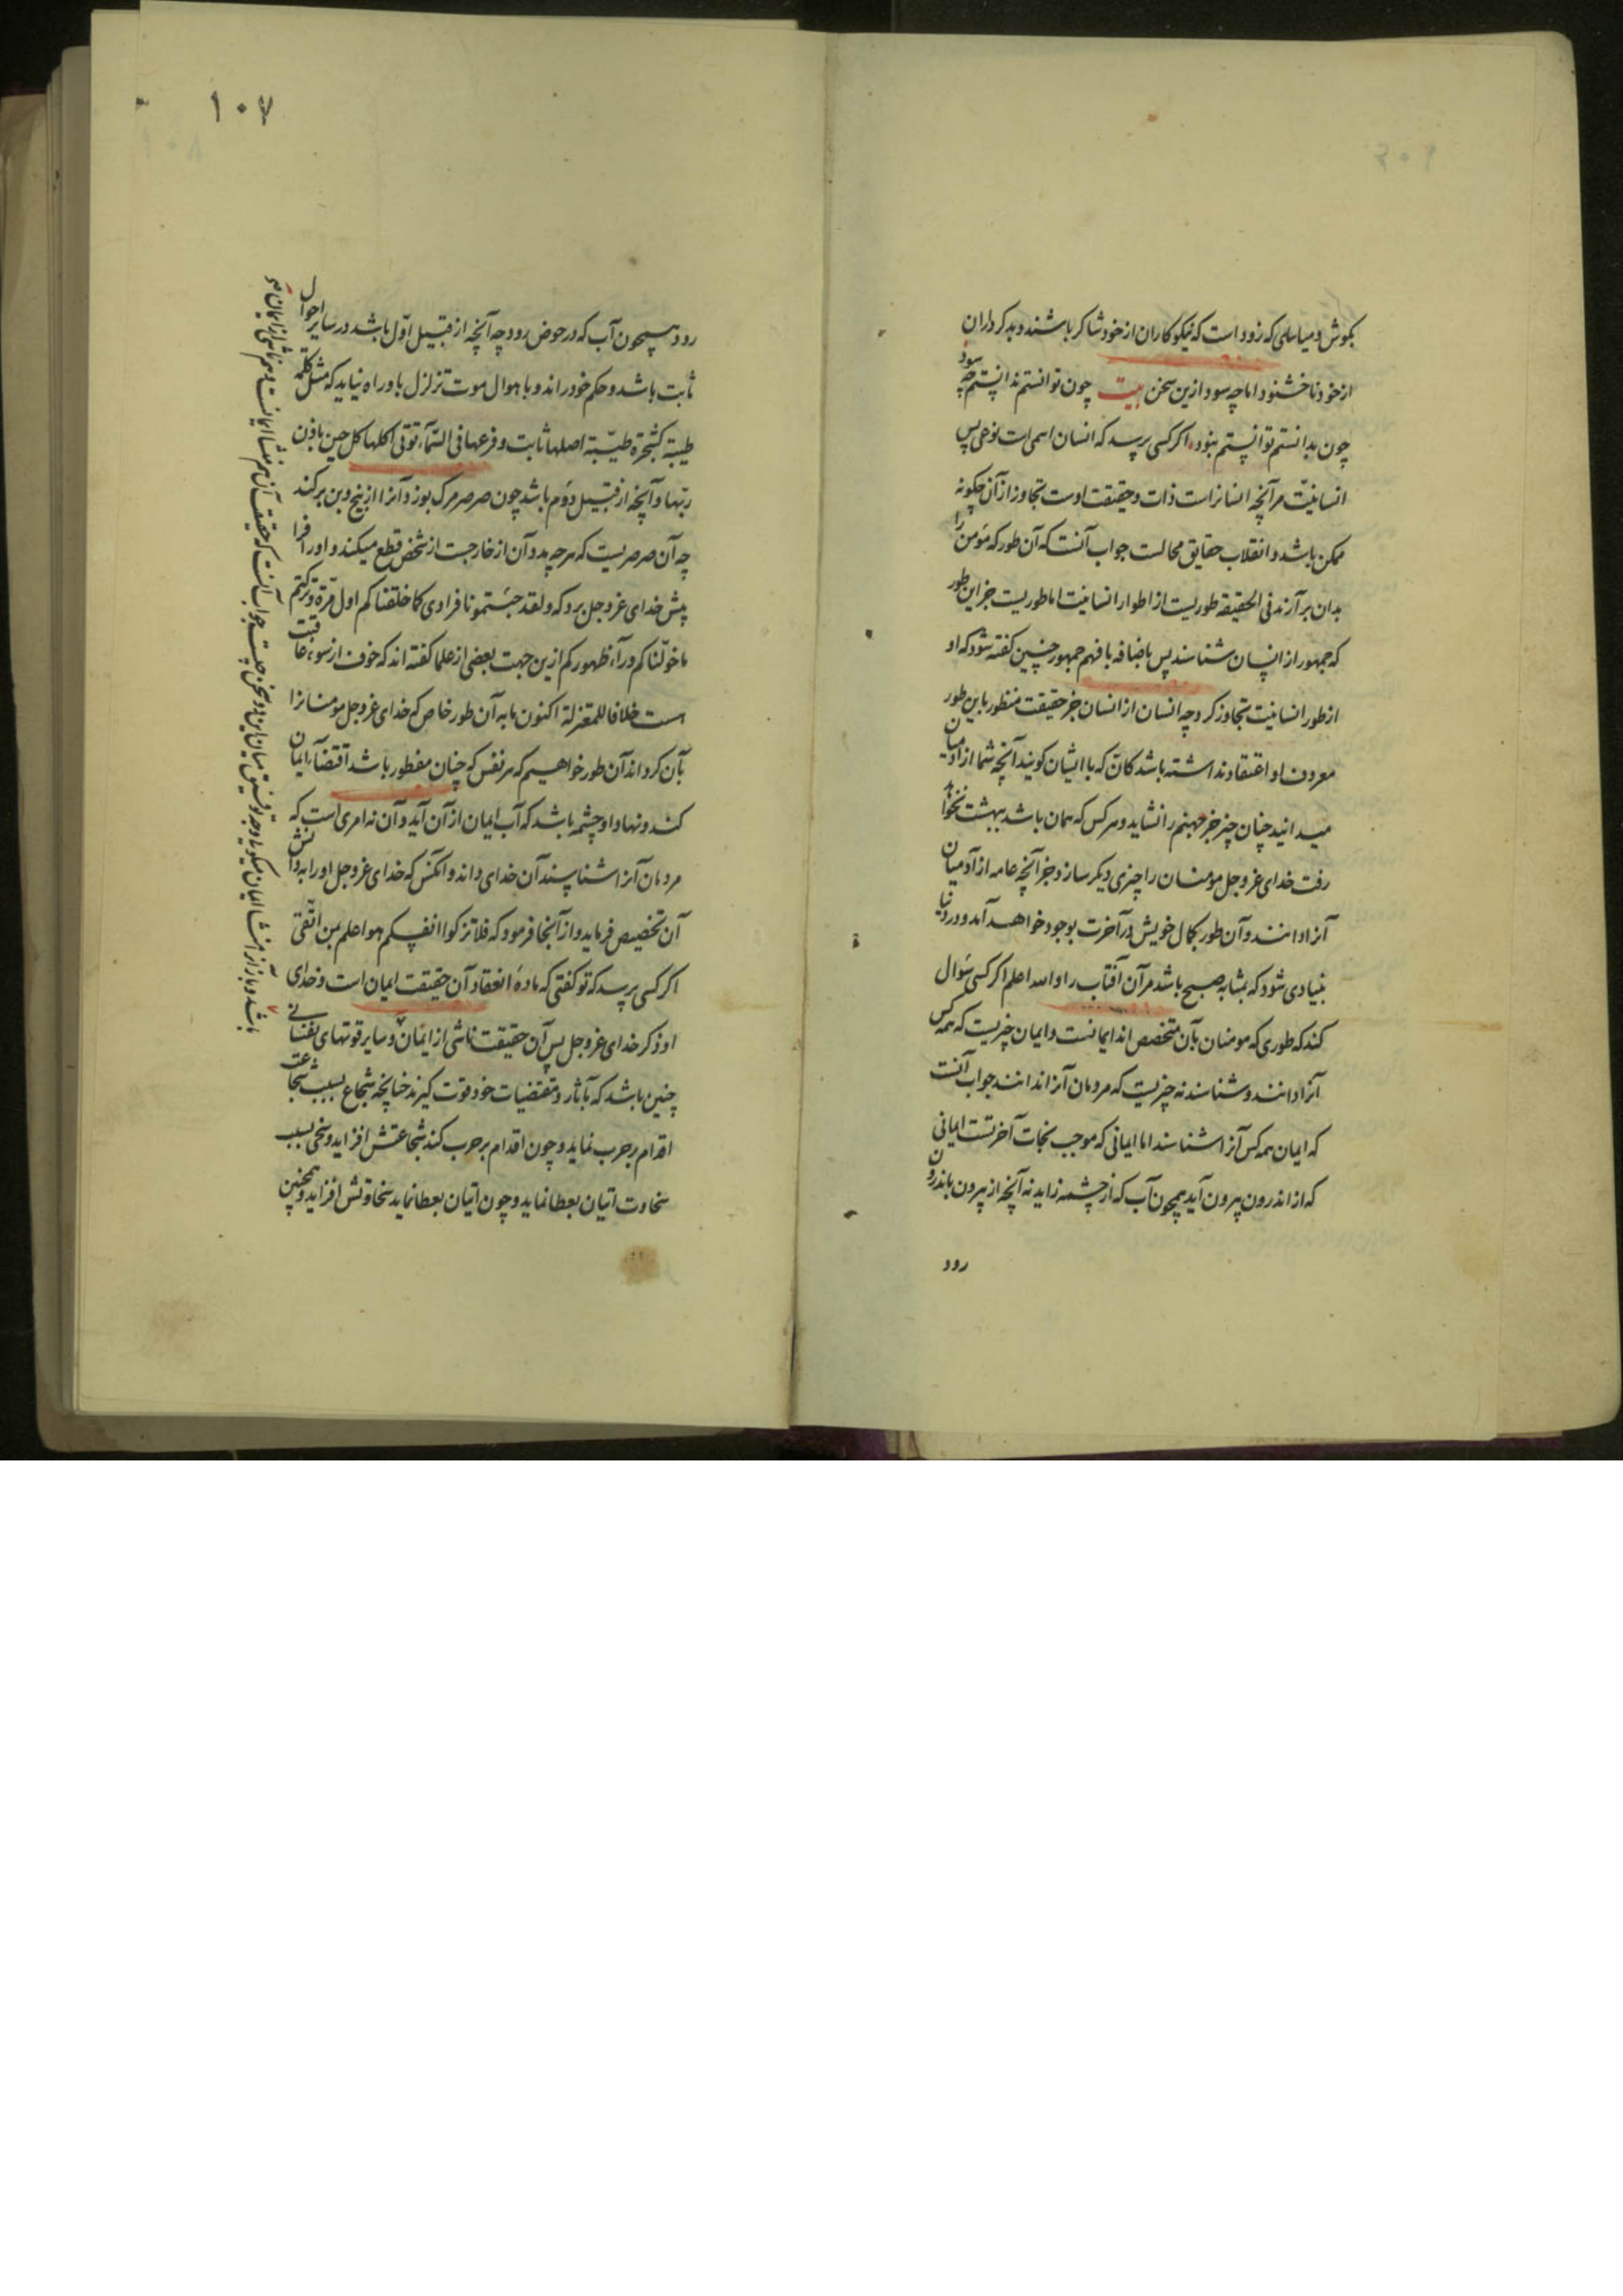 بکوش و میاسای که زود است که نیکوکاران از خود شاکر باشند و بدکرداران
از خود ناخشنود اما چه سود ازین سخن بیت چون توانستم ندانستم چه سود
چون بدانستم توانستم نبود اکر کسی پرسد که انسان اسمی است نوعی پس
انسانیت مر آنچه انسانراست ذات و حقیقت اوست تجاوز از آن چکونه
ممکن باشد و انقلاب حقایق محالست جواب آنست که آن طور که مومن را
بدان برآرند فی الحقیقه طوریست از اطوار انسانیت اما طوریست جز این طور
که جمهور از انسان شناسند پس باضافه با فهم جمهور چنین کفته شود که او
از طور انسانیت تجاوز کرد چه انسان از انسان جز حقیقت منظور باین طور
معروف او اعتقاد نداشته باشد کانّ که با ایشان کویند آنچه شما از آدمیان
میدانید چنان چیز جز جهنم را نشاید و هر کس که همان باشد ببهشت نخواهد
رفت خدای عزوجل مومنان را چیزی دیکر سازد جز آنچه عامه از آدمیان
آنرا دانند و آن طور بکمال خویش در آخرت بوجود خواهد آمد و در دنیا
بنیادی شود که بمثابه صبح باشد مر آن آفتاب را والله اعلم اکر کسی سؤال
کند که طوری که مومنان بآن متخصص اند ایمانست و ایمان چیزیست که همه کس
آنرا دانند و شناسند نه چیزیست که مردمان آنرا ندانند جواب آنست
که ایمان همه کس آنرا شناسند اما ایمانی که موجب نجات آخرتست ایمانی
که از اندرون بیرون آید همچون آب که از چشمه زاید نه آنچه از بیرون باندرون
رود
۱۰۷
رود همچون آب که در حوض رود چه آنچه از قبیل اوّل باشد در سایر احوال
ثابت باشد و حکم خود راند و باهوال موت تزلزل باو راه نیابد که مثل کلمة
طیبة کشجرة طیّبة اصلها ثابت و فرعها فی السّمآء تؤتی اکلها کل حین باذن
ربّها و آنچه از قبیل دوّم باشد چون صرصر مرک بوزد آنرا از بیخ و بن برکند
چه آن صرصریست که هر چه بدو آن از خارجست از شخص قطع میکند و او را فرا
پیش خدای عزوجل برد که و لقد جئتمونا فرادی کما خلقناکم اول مرّة و ترکتم
ما خولناکم ورآء ظهورکم ازین جهت بعضی از علما کفته اند که خوف از سوء عاقبت
است خلافا للمعتزلة اکنون ما به آن طور خاص که خدای عزوجل مومنانرا
بآن کرداند آن طور خواهیم که هر نفس که چنان مفطور باشد اقتضآء ایمان
کند و نهاد او چشمه باشد که آب ایمان از آن آید و آن نه امری است که
مردمان آنرا شناسند آن خدای داند و آنکس که خدای عزوجل او را به دانش
آن تخصیص فرماید و از آنجا فرمود که فلا تزکوا انفسکم هو اعلم بمن اتّقی
اکر کسی پرسد که تو کفتی که ماده انعقاد آن حقیقت ایمان است و خدای
او ذکر خدای عزوجل پس آن حقیقت ناشی از ایمان و سایر قوتهای نفسانی
چنین باشد که بآثار و مقتضیات خود قوت کیرند چنانچه شجاع بسبب شجاعت
اقدام بر حرب نماید و چون اقدام بر حرب کند شجاعتش افزاید و سخی بسبب
سخاوت اتیان بعطا نماید و چون اتیان بعطا نماید سخاوتش افزاید و همچنین
باشد و باز آنرا منشا ایمان میکویی وجه توفیق میان این دو سخن چیست جواب آنست که حقیقت آن هم منشا ایمانست و هم ناشی از ایمان